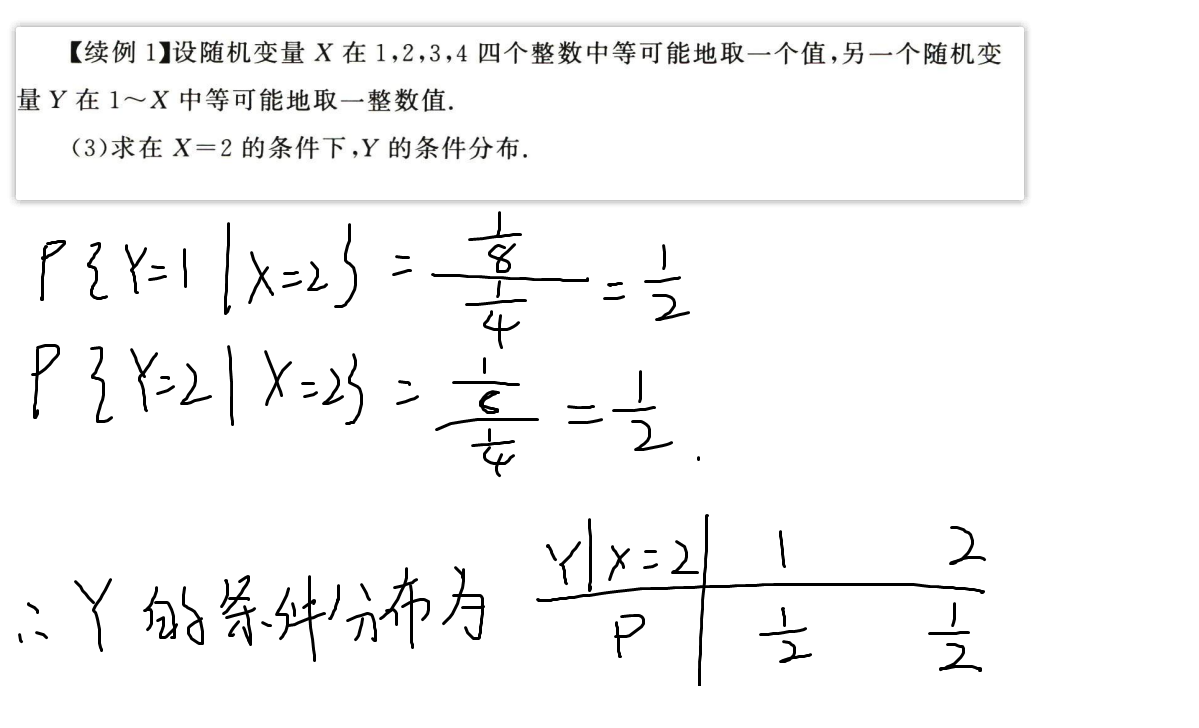 【续例 1】设随机变量 X 在 1,2,3,4 四个整数中等可能地取一个值,另一个随机变
量 Y 在 1～X 中等可能地取一整数值.
(3)求在 X=2 的条件下,Y 的条件分布.
P{Y=1|X=2} = (1/8)/(1/4) = 1/2
P{Y=2|X=2} = (1/6)/(1/4) = 1/2.
∴ Y 的条件分布为
Y|X=2 | 1 2
P | 1/2 1/2